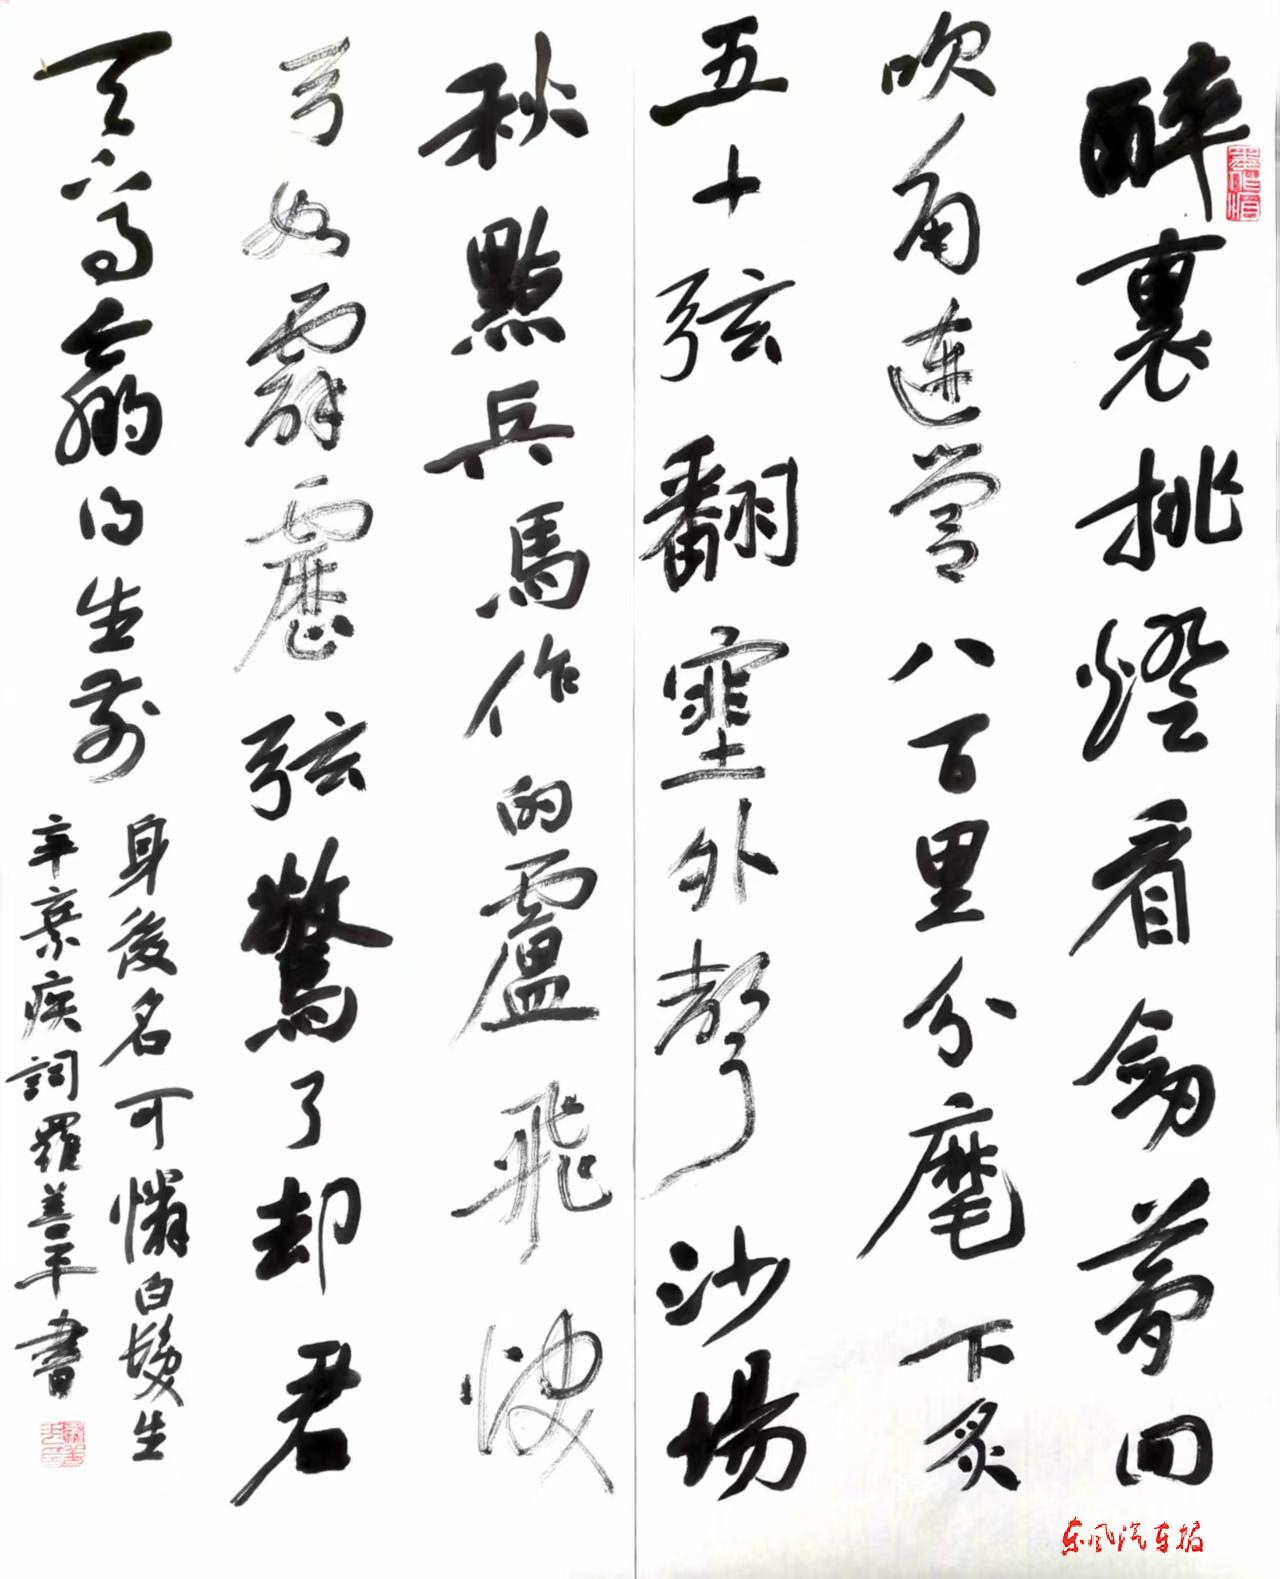 醉裏挑燈看劍夢回
吹角連營八百里分麾下炙
五十弦翻塞外聲沙場
秋點兵馬作的盧飛快
弓如霹靂弦驚了却君
天下事贏得生前
身後名可憐白髮生
辛棄疾詞羅善平書
东风汽车报